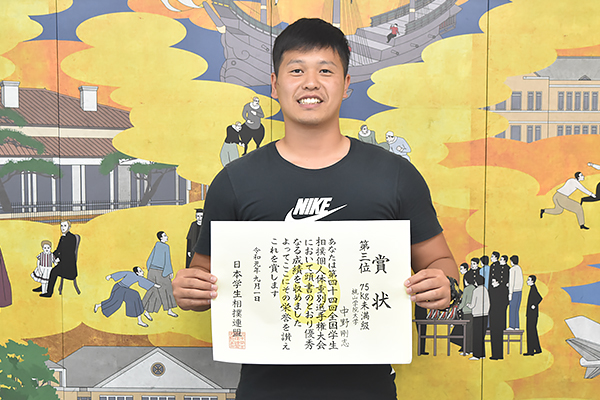 NIKE
賞状
第三位 75kg未満級
桃山学院大学
中野剛志
あなたは第四十四回全国学生
相撲個人体重別選手権大会
において頭書のとおり優秀
なる成績を収めました
よってここにその栄誉を讃え
これを賞します
令和元年九月一日
日本学生相撲連盟